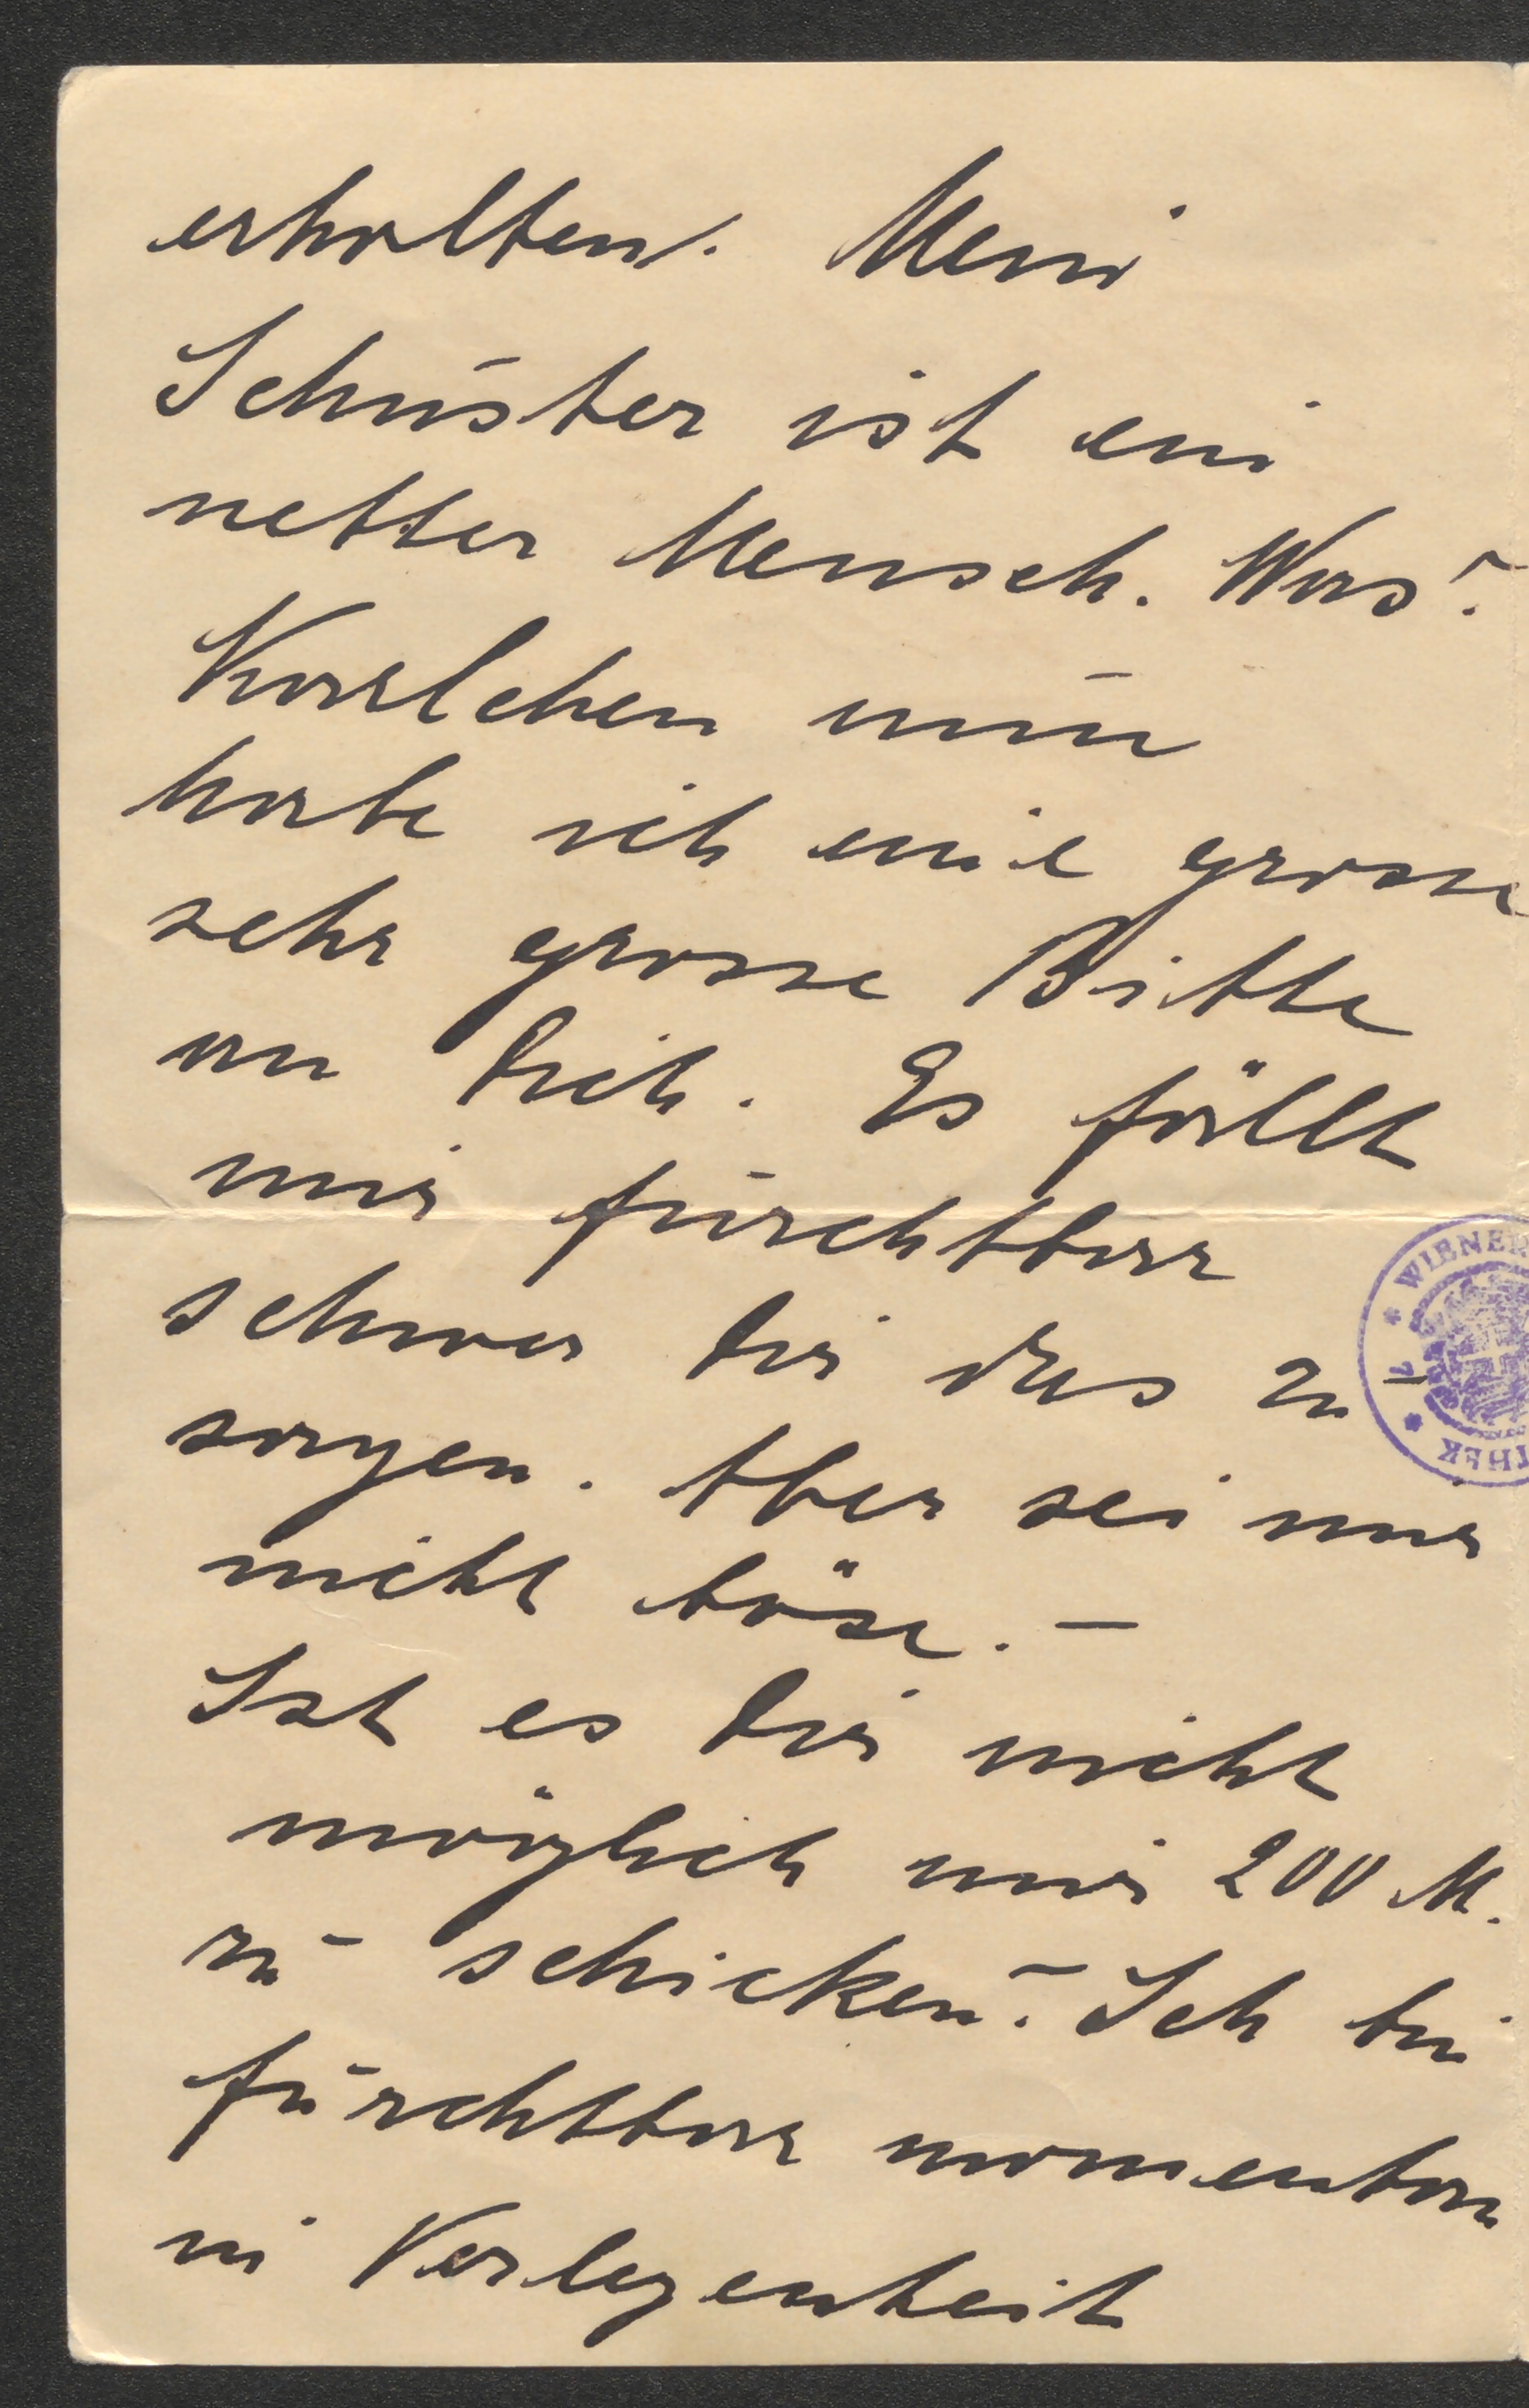 erhalten. Mein
Schuster ist ein
netter Mensch. Was?
Karlchen nun
habe ich eine grosse
sehr grosse Bitte
an Dich. Es fällt
mir furchtbar
schwer Dir das zu
sagen. Aber sei mir
nicht böse. —
Ist es Dir nicht
möglich mir 200 M.
zu schicken? Ich bin
furchtbar momentan
in Verlegenheit
WIENER
THEK